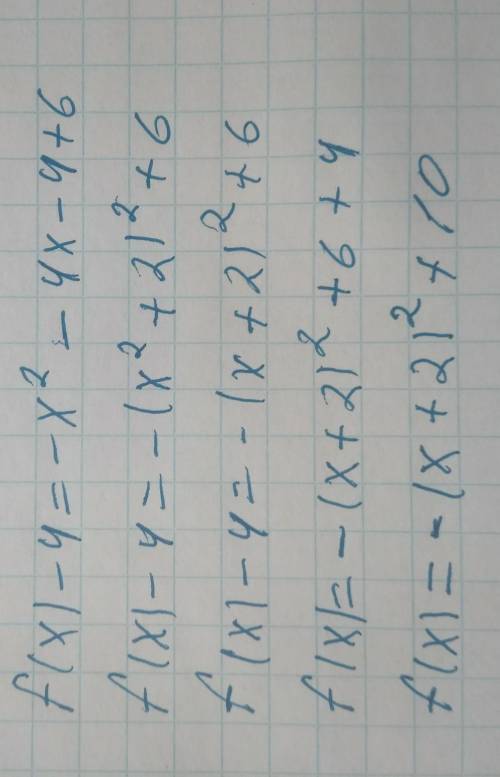 f(x) - 4 = -x² - 4x - 4 + 6
f(x) - 4 = -(x² + 2)² + 6
f(x) - 4 = -(x + 2)² + 6
f(x) = -(x + 2)² + 6 + 4
f(x) = -(x + 2)² + 10